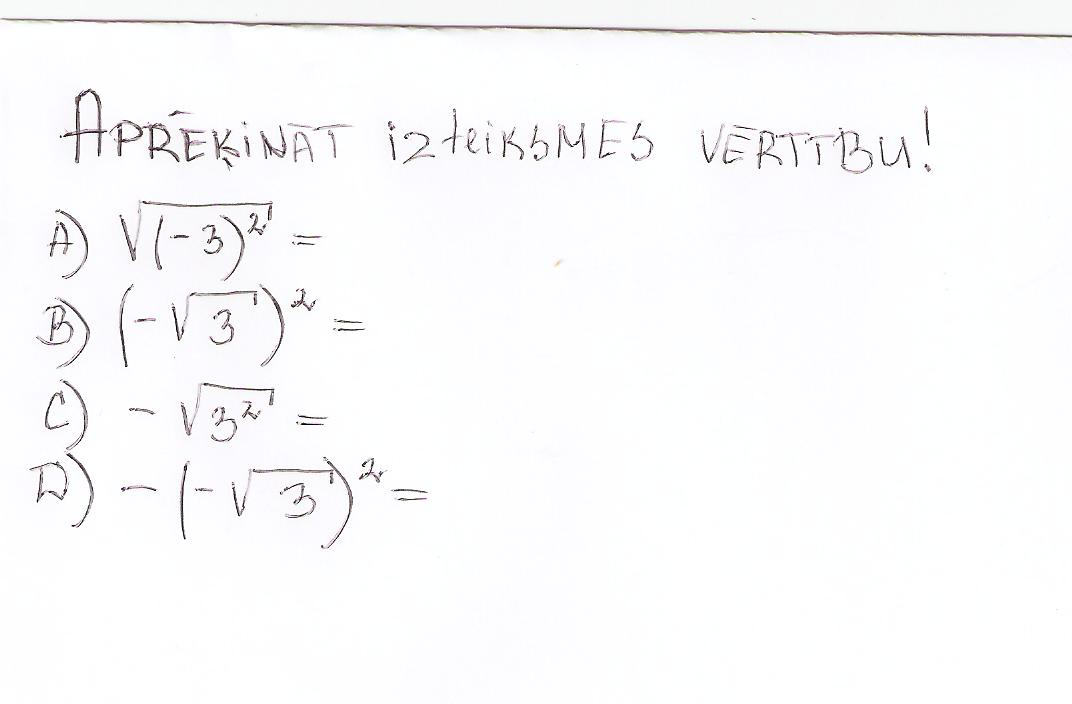 APRĒĶINĀT izteiksMES VĒRTĪBU!
A) √(-3)² =
B) (-√3)² =
C) -√3² =
D) -(-√3)² =